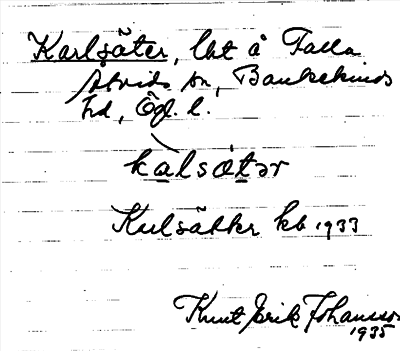 Karlsäter, lht å Falla
Åtvids sn, Bankekinds
hd, Ögl. l.
kalsätər
Kulsätter kb 1933
Knut Erik Johansson
1935